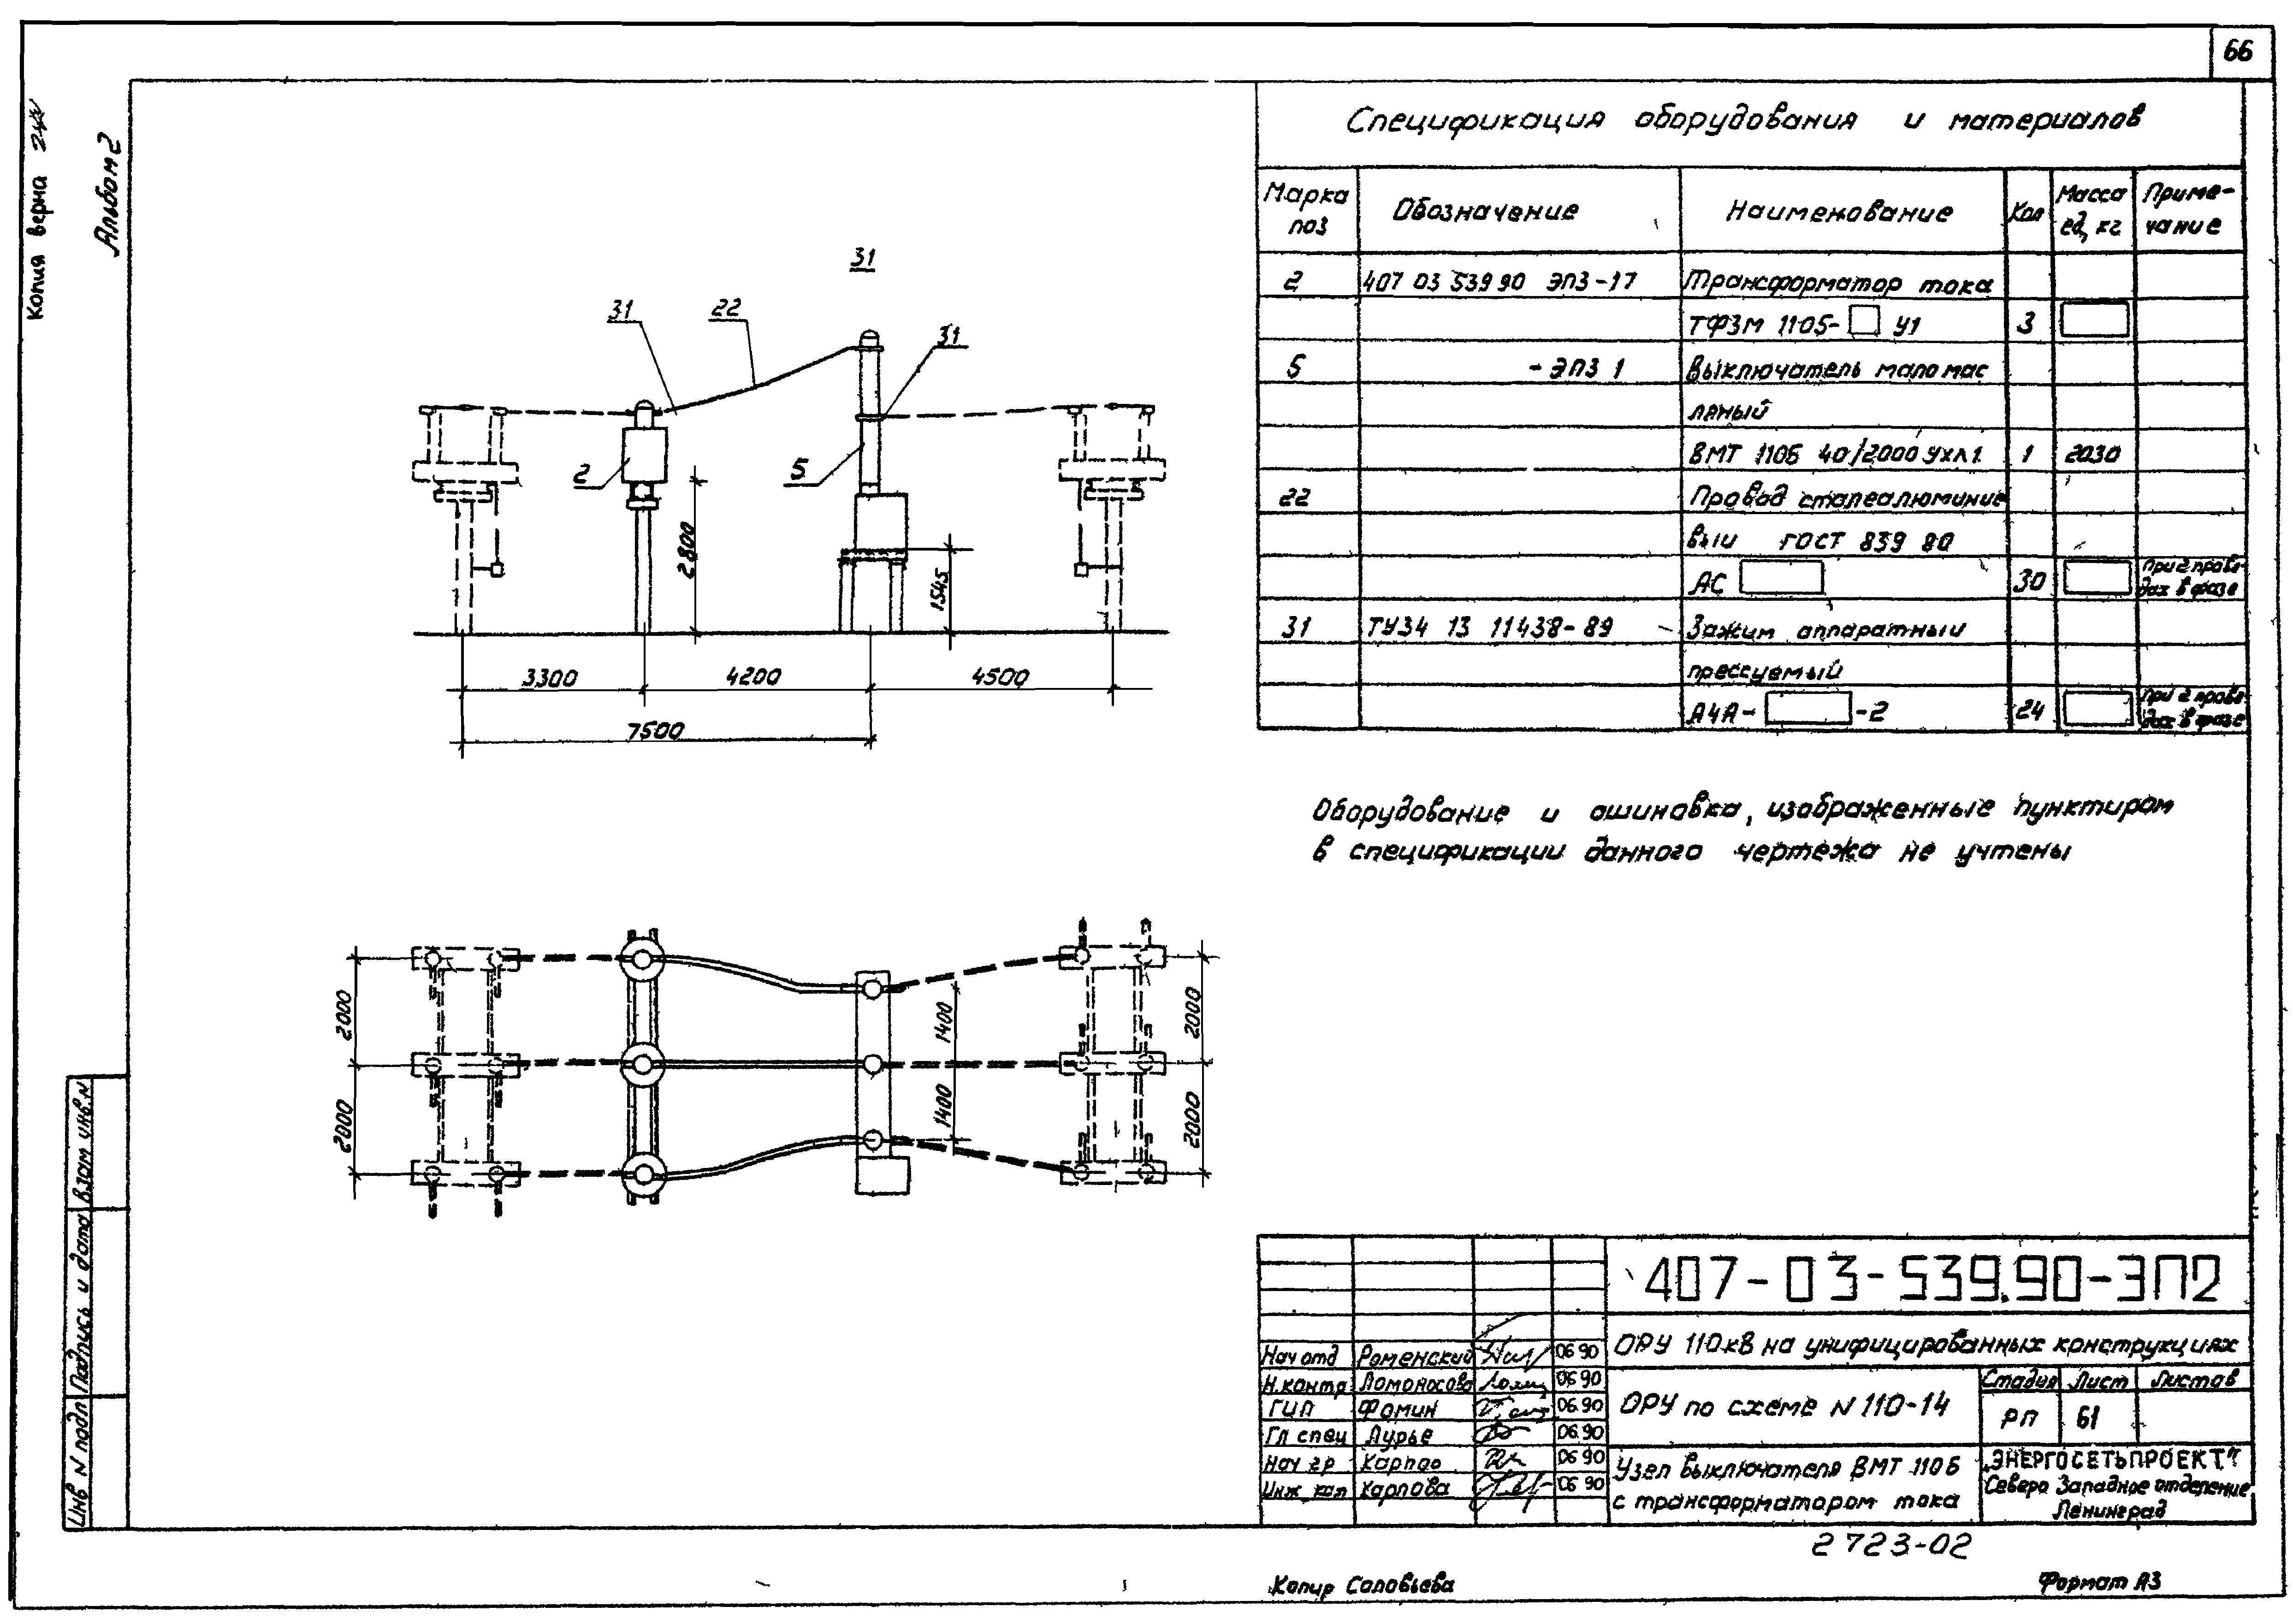 66
Копия верна
Альбом 2
Спецификация оборудования и материалов
Марка поз
Обозначение
Наименование
Кол
Масса ед, кг
Приме-чание
2 407 03 539 90 ЭП3-17 Трансформатор тока
ТФЗМ 110Б- У1 3
5 - ЭП3 1 Выключатель маломас
ляный
ВМТ 110Б 40/2000 УХЛ1 1 2030
22 Провод сталеалюминие
выи ГОСТ 839 80
АС 30 При 2 прово-дах в фазе
31 ТУ34 13 11438-89 Зажим аппаратныи
прессуемый
А4А- -2 24 При 2 прово-дах в фазе
Оборудование и ошиновка, изображенные пунктиром
в спецификации данного чертежа не учтены
31
31
22
31
2
5
2800
1545
3300
4200
4500
7500
2000
2000
1400
1400
2000
2000
Инв N подл
Подпись и дата
Взам инв.N
407-03-539.90-ЭП2
ОРУ 110кВ на унифицированных конструкциях
Нач отд Роменский 06 90
Н.контр Ломоносова 06 90
ГИП Фомин 06.90
Гл спец Лурье 06.90
Нач гр Карпов 06 90
Инж кат Карпова 06 90
ОРУ по схеме N 110-14
Стадия Лист Листов
РП 61
Узел выключателя ВМТ 110Б
с трансформатором тока
„ЭНЕРГОСЕТЬПРОЕКТ"
Северо Западное отделение
Ленинград
2723-02
Копир Соловьева
Формат А3